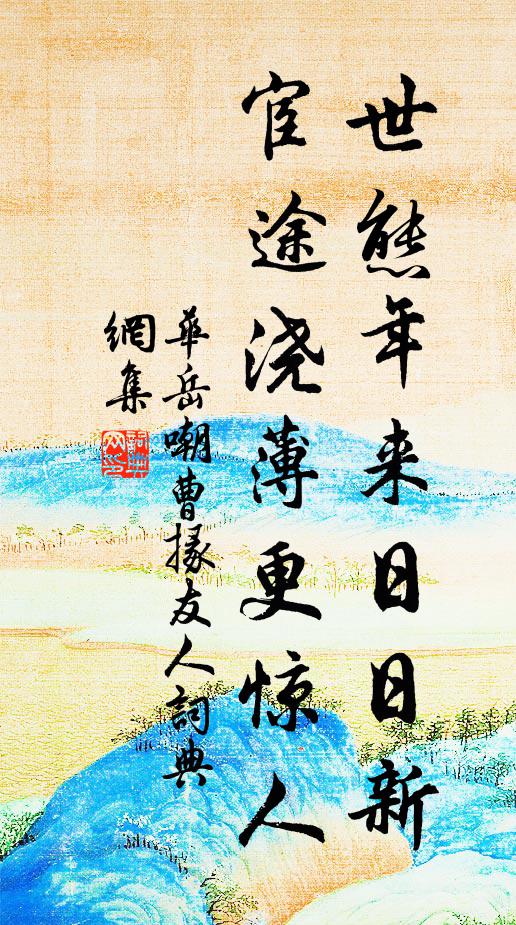 世態年来日日新
宦途浇薄更惊人
華岳嘲曹掾友人詞典
網集